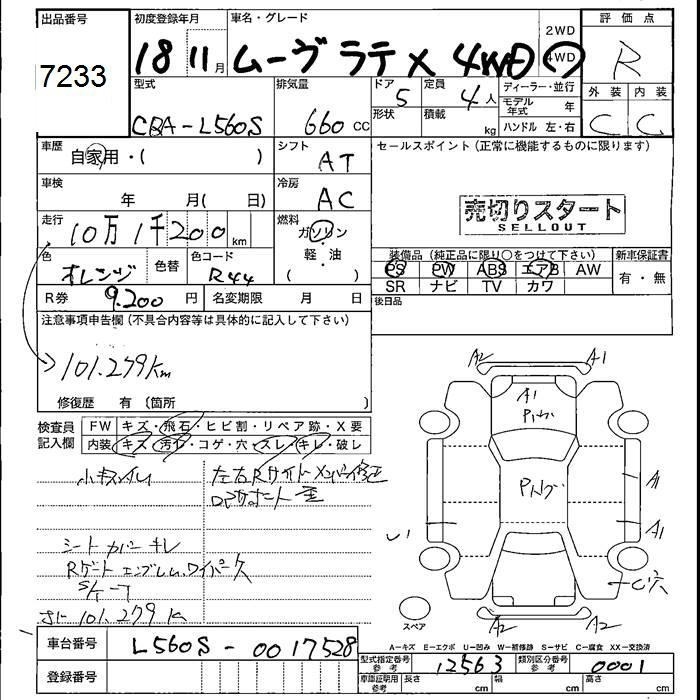 出品番号 初度登録年月 車名・グレード 評価点
7233 18 11月 ムーヴ ラテ X 4WD 2WD 4WD R
型式 排気量 ドア 定員 ディーラー・並行 外装 内装
CBA-L560S 660 cc 5 4人 モデル年式 年 C C
形状 積載 kg ハンドル 左・右
車歴 自家用・( ) シフト AT セールスポイント(正常に機能するものに限ります)
車検 年 月( 日) 冷房 AC
売切りスタート
SELLOUT
走行 10万1千200 km 燃料 ガソリン・軽・油 ( )
装備品(純正品に限り○をつけて下さい) 新車保証書
色 オレンジ 色替 色コード R44 PS PW ABS エアB AW 有・無
SR ナビ TV カワ
R券 9.200 円 名変期限 月 日 後日品
注意事項申告欄(不具合内容等は具体的に記入して下さい)
101.279km
修復歴 有(箇所 )
A2 A1
A1
検査員記入欄 FW キズ・飛石・ヒビ割・リペア跡・X要
内装 キズ・汚れ・コゲ・穴・スレ・キレ・破レ
左右Rサイドメンバー修正
A1
A1
シートカバーキレ
Rゲートエンブレム、ワイパー欠
C穴
101.279k
スペア A2 A2
A-キズ E-エクボ U-凹み W-補修跡 S-サビ C-腐食 XX-交換済
車台番号 L560S-0017528
型式指定番号 参考 12563 類別区分番号 参考 0001
登録番号
車庫証明用 参考 長さ cm 幅 cm 高さ cm